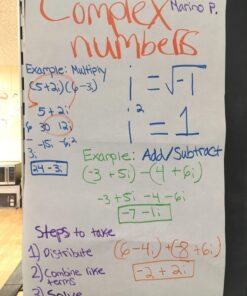 Complex
Marino P.
numbers
Example: Multiply
(5+2i)(6-3i)
5 + 2i
6 30 12i
- -15i -6i²
3i
24 - 3i
i = √-1
i² = 1
Example: Add/Subtract
(-3 + 5i) - (4 + 6i)
-3 + 5i - 4 - 6i
-7 - 1i
Steps to take
1) Distribute
2) Combine like
terms
3) Solve
(6 - 4i) + (-8 + 6i)
-2 + 2i